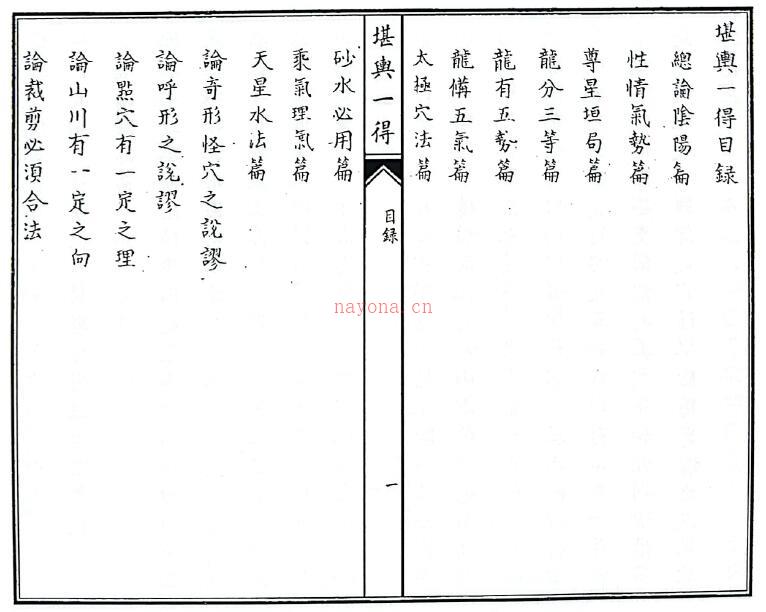 堪輿一得目録
總論陰陽篇
性情氣勢篇
尊星垣局篇
龍分三等篇
龍有五勢篇
龍備五氣篇
太極穴法篇
堪輿一得
目録
一
砂水必用篇
乘氣理氣篇
天星水法篇
論奇形怪穴之說謬
論呼形之說謬
論點穴有一定之理
論山川有一定之向
論裁剪必須合法
nayona.cn